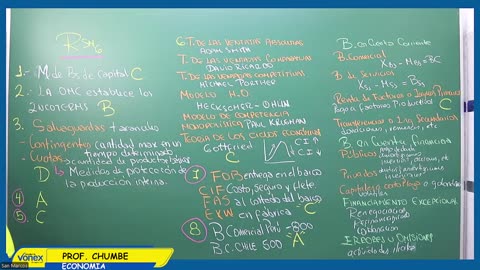 RSH6
1.- M de Bs. de Capital C
2.- LA OMC establece los
INCOTERMS B
3. Salvaguardas → aranceles
- Contingentes → cantidad max en un
tiempo determinado
- Cuotas → cantidad de productos
D ↳ Medidas de protección de
la producción interna.
4. A
5. C
6 T. DE LAS VENTAJAS ABSOLUTAS
ADAM SMITH
T. DE LAS VENTAJAS COMPARATIVAS
DAVID RICARDO
T. DE LAS VENTAJAS COMPETITIVAS
MICHAEL PORTHER
MODELO H.O
HECKSCHER-OHLIN
MODELO DE COMPETENCIA
MONOPOLISTICA PAUL KRUGMAN
TEORIA DE LOS CICLOS ECONÓMICOS
Gottfried
C.I ↑
C.I ↓
C
7 FOB entrega en el barco
CIF Costo, seguro y flete
FAS al costado del barco
EXW en fabrica C
8 B Comercial Perú -800
B.C. CHILE 500 A
B. en Cuenta Corriente
B. Comercial
XBs - MBs = BC
B. de Servicios
XSs - MSs = BS
Renta de Factores
Pago a Factores Productivos C
Transferencias o Ing. Secundarios
donaciones, remesas, etc
B. en Cuenta Financiera
Públicos
Privados
Capitales corto Plazo
FINANCIAMIENTO EXCEPCIONAL
Renegociación
Refinanciamiento
Condonación
ERRORES U OMISIONES
San Marcos
vonex
PROF. CHUMBE
ECONOMIA